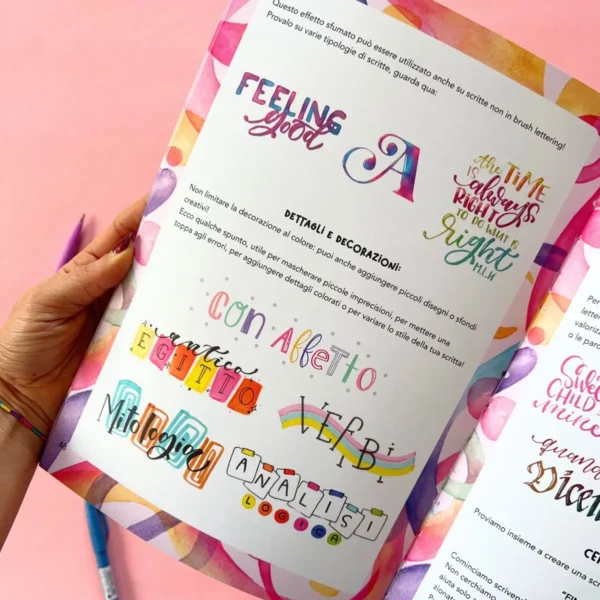 Questo effetto sfumato può essere utilizzato anche su scritte non in brush lettering!
Provalo su varie tipologie di scritte, guarda qua:
FEELING
good
A
the TIME
IS always
RIGHT
TO DO WHAT IS
right
M.L.K
DETTAGLI E DECORAZIONI:
Non limitare la decorazione al colore: puoi anche aggiungere piccoli disegni o sfondi
creativi!
Ecco qualche spunto, utile per mascherare piccole imprecisioni, per mettere una
toppa agli errori, per aggiungere dettagli colorati o per variare lo stile della tua scritta!
con AffETTO
antico
EGITTO
Mitologia
VERBI
ANALISI
LOGICA
68
Per
letter
valorizz
o le paro
SWEET
CHILD
mine
quand
Dicem
Proviamo insieme a creare una scri
CER
"FIN
Cominciamo scrivend
Non cerchiamo
aiuta solo
zionat